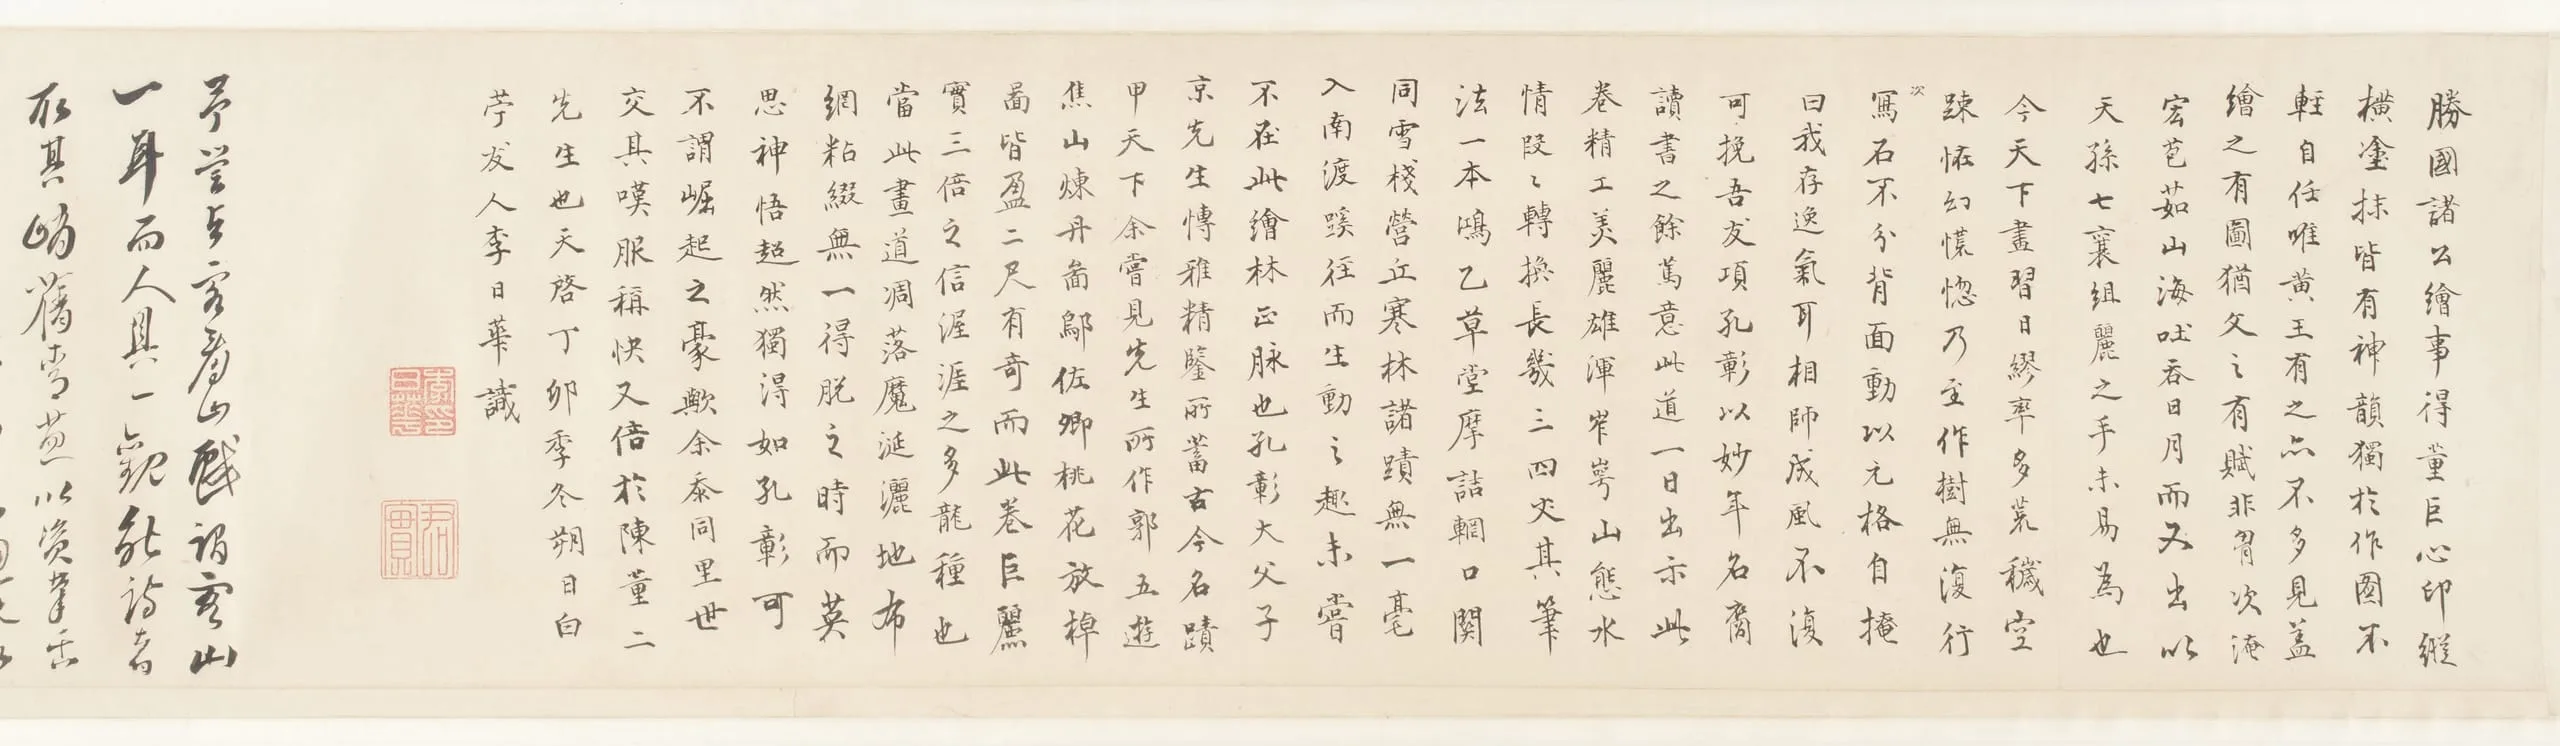 勝國諸公繪事得董巨心印縱
橫塗抹皆有神韻獨於作圖不
輕自任唯黃王有之亦不多見蓋
繪之有圖猶文之有賦非胷次淹
宏苞茹山海吐吞日月而又出以
天孫七襄組麗之手未易為也
今天下畫習日繆率多荒穢空
踈恠幻慌惚乃至作樹無復行
次
寫石不分背面動以元格自掩
曰我存逸氣耳相師成風不復
可挽吾友項孔彰以妙年名裔
讀書之餘篤意此道一日出示此
卷精工美麗雄渾岝崿山態水
情段〻轉換長幾三四丈其筆
法一本鴻乙草堂摩詰輞口關
同雪棧營丘寒林諸蹟無一毫
入南渡蹊徑而生動之趣未嘗
不在此繪林正脉也孔彰大父子
京先生博雅精鑒所蓄古今名蹟
甲天下余嘗見先生所作郭五遊
焦山煉丹啚鄔佐卿桃花放棹
啚皆盈二尺有奇而此卷巨麗
實三倍之信渥涯之多龍種也
當此畫道凋落魔涎灑地布
網粘綴無一得脱之時而英
思神悟超然獨得如孔彰可
不謂崛起之豪歟余泰同里世
交其嘆服稱快又倍於陳董二
先生也天啓丁卯季冬朔日白
苧友人李日華識
予嘗與客看山戲謂客山
一耳而人具一觀能詩者
取其峭蒨青葱以資筆舌